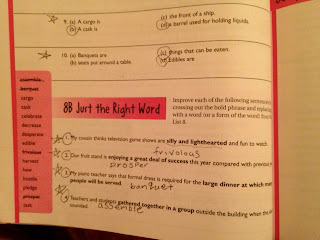 9. (a) A cargo is
(b) A cask is
(c) the front of a ship.
(d) a barrel used for holding liquids.
10. (a) Banquets are
(b) seats put around a table.
(c) things that can be eaten.
(d) Edibles are
assemble
banquet
cargo
cask
celebrate
decrease
desperate
edible
frivolous
harvest
hew
hostile
pledge
prosper
task
8B Just the Right Word
Improve each of the following sentences
crossing out the bold phrase and replacing
with a word (or form of the word) from
List 8.
1. My cousin thinks television game shows are silly and lighthearted and fun to watch.
frivolous
2. Our fruit stand is enjoying a great deal of success this year compared with previous
prosper
3. My piano teacher says that formal dress is required for the large dinner at which many
people will be served. banquet
4. Teachers and students gathered together in a group outside the building when the
sounded. assemble